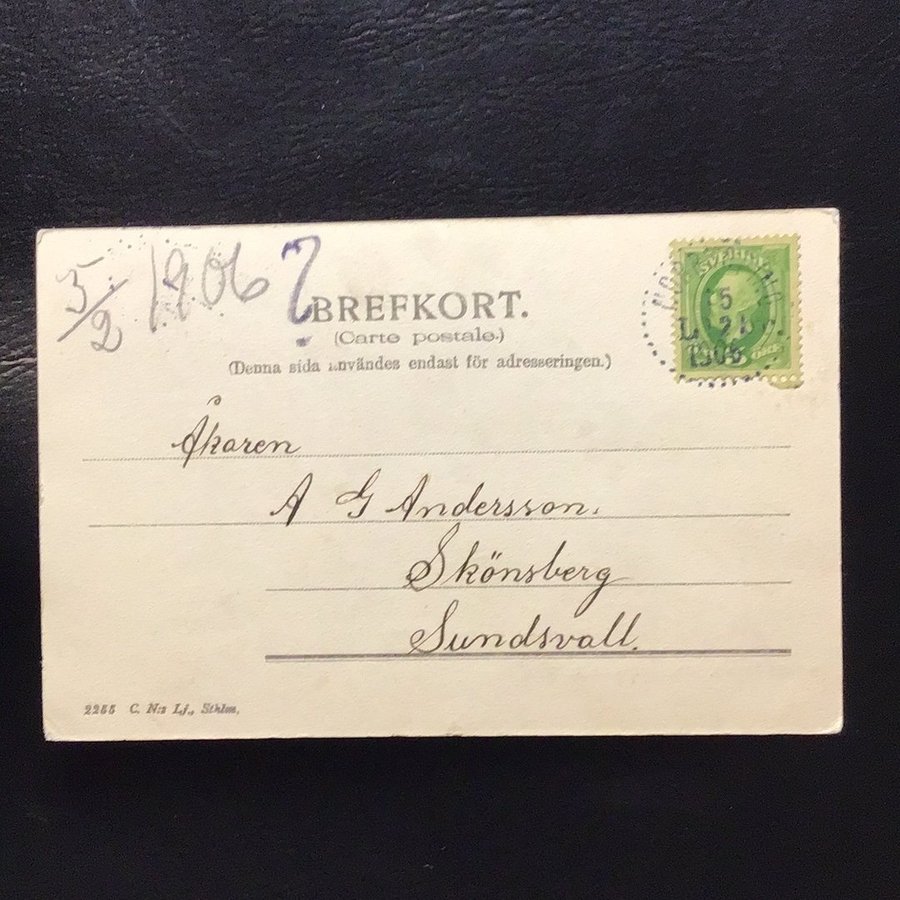 5/2 1906 7
BREFKORT.
(Carte postale.)
(Denna sida användes endast för adresseringen.)
SVERIGE
5
L. 2
1906
ÖRE
Åkaren
A G Andersson.
Skönsberg
Sundsvall.
2255 C. N:s Lj., Sthlm.